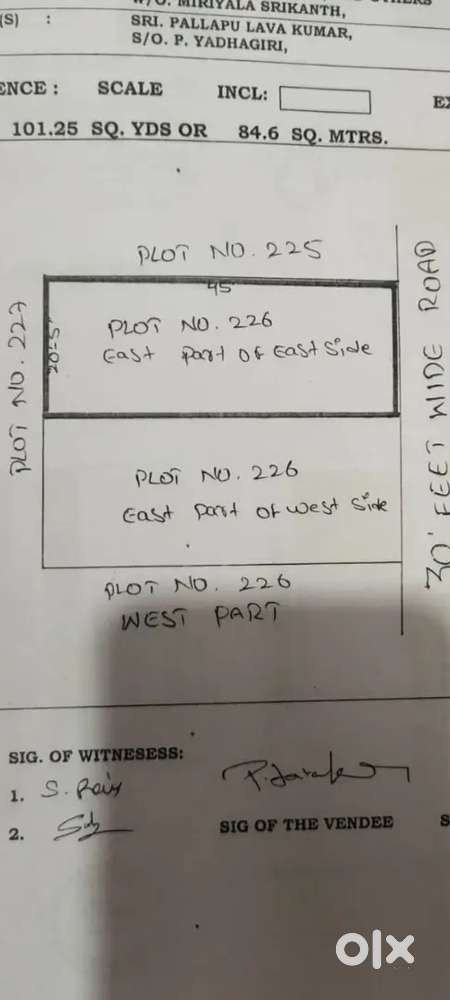 W/O. MIRIYALA SRIKANTH,
(S) : SRI. PALLAPU LAVA KUMAR,
S/O. P. YADHAGIRI,
ENCE : SCALE INCL: EX
101.25 SQ. YDS OR 84.6 SQ. MTRS.
PLOT NO. 225
45'
PLOT NO. 227
20'-5"
PLOT NO. 226
East part of East Side
30' FEET WIDE ROAD
PLOT NO. 226
East part of west Side
PLOT NO. 226
WEST PART
SIG. OF WITNESESS:
1. S.
2.
SIG OF THE VENDEE S
olx